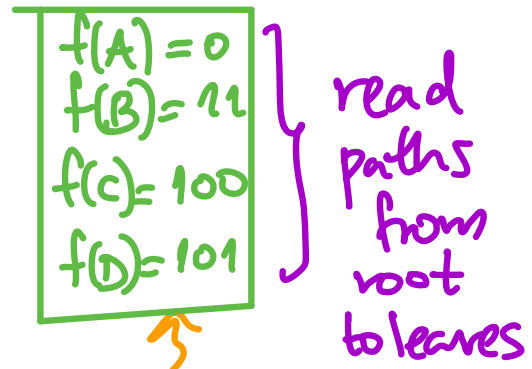 f(A) = 0
f(B) = 11
f(C) = 100
f(D) = 101
read
paths
from
root
to leaves